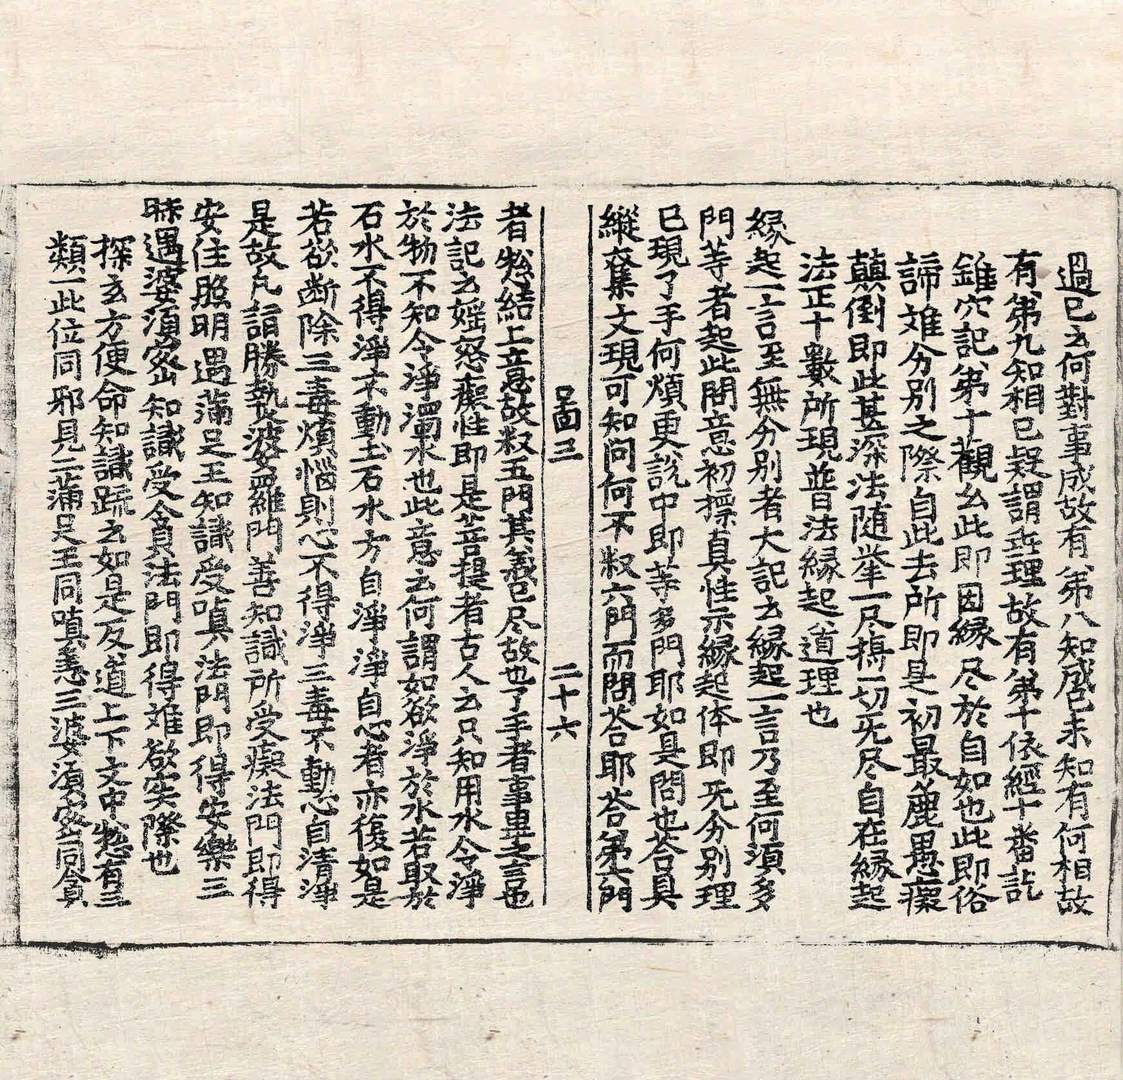 過已云何對事成故有第八知成已未知有何相故
有第九知相已疑謂乖理故有第十依經十番訖
錐穴記第十觀幺此即因縁尽於自如也此即俗
諦难分別之際自此去所即是初最麁愚癡
顛倒即此甚深法随峯一尽得一切旡尽自在縁起
法正十數所現普法縁起道理也
縁起一言至無分別者大記云縁起一言乃至何湏多
門䓁者起此問意初摽真性示縁起体即旡分別理
已現了手何煩更說中即䓁多門耶如是問也荅具
縱奪集文現可知問何不㕚六門而問荅耶荅第六門
圖三
二十六
者㹅結上意故㕚五門其義已尽故也了手者事畢之言也
法記云婬怒癡性即是菩提者古人云只知用水令淨
於物不知令淨濁水也此意云何謂如欲淨於水若取於
石水不得淨不動圡石水方自淨淨自心者亦復如是
若欲断除三毒煩惱則心不得淨三毒不動心自清淨
是故凡詣勝𤍠婆羅門善知識所受癡法門即得
安住照明遇蒲足王知識受嗔法門即得安樂三
昧遇婆湏蜜知識受貪法門即得难欲实際也
探玄方便命知識䟽云如是反道上下文中㹅有三
類一此位同邪見二蒲足王同嗔恚三婆湏蜜同貪